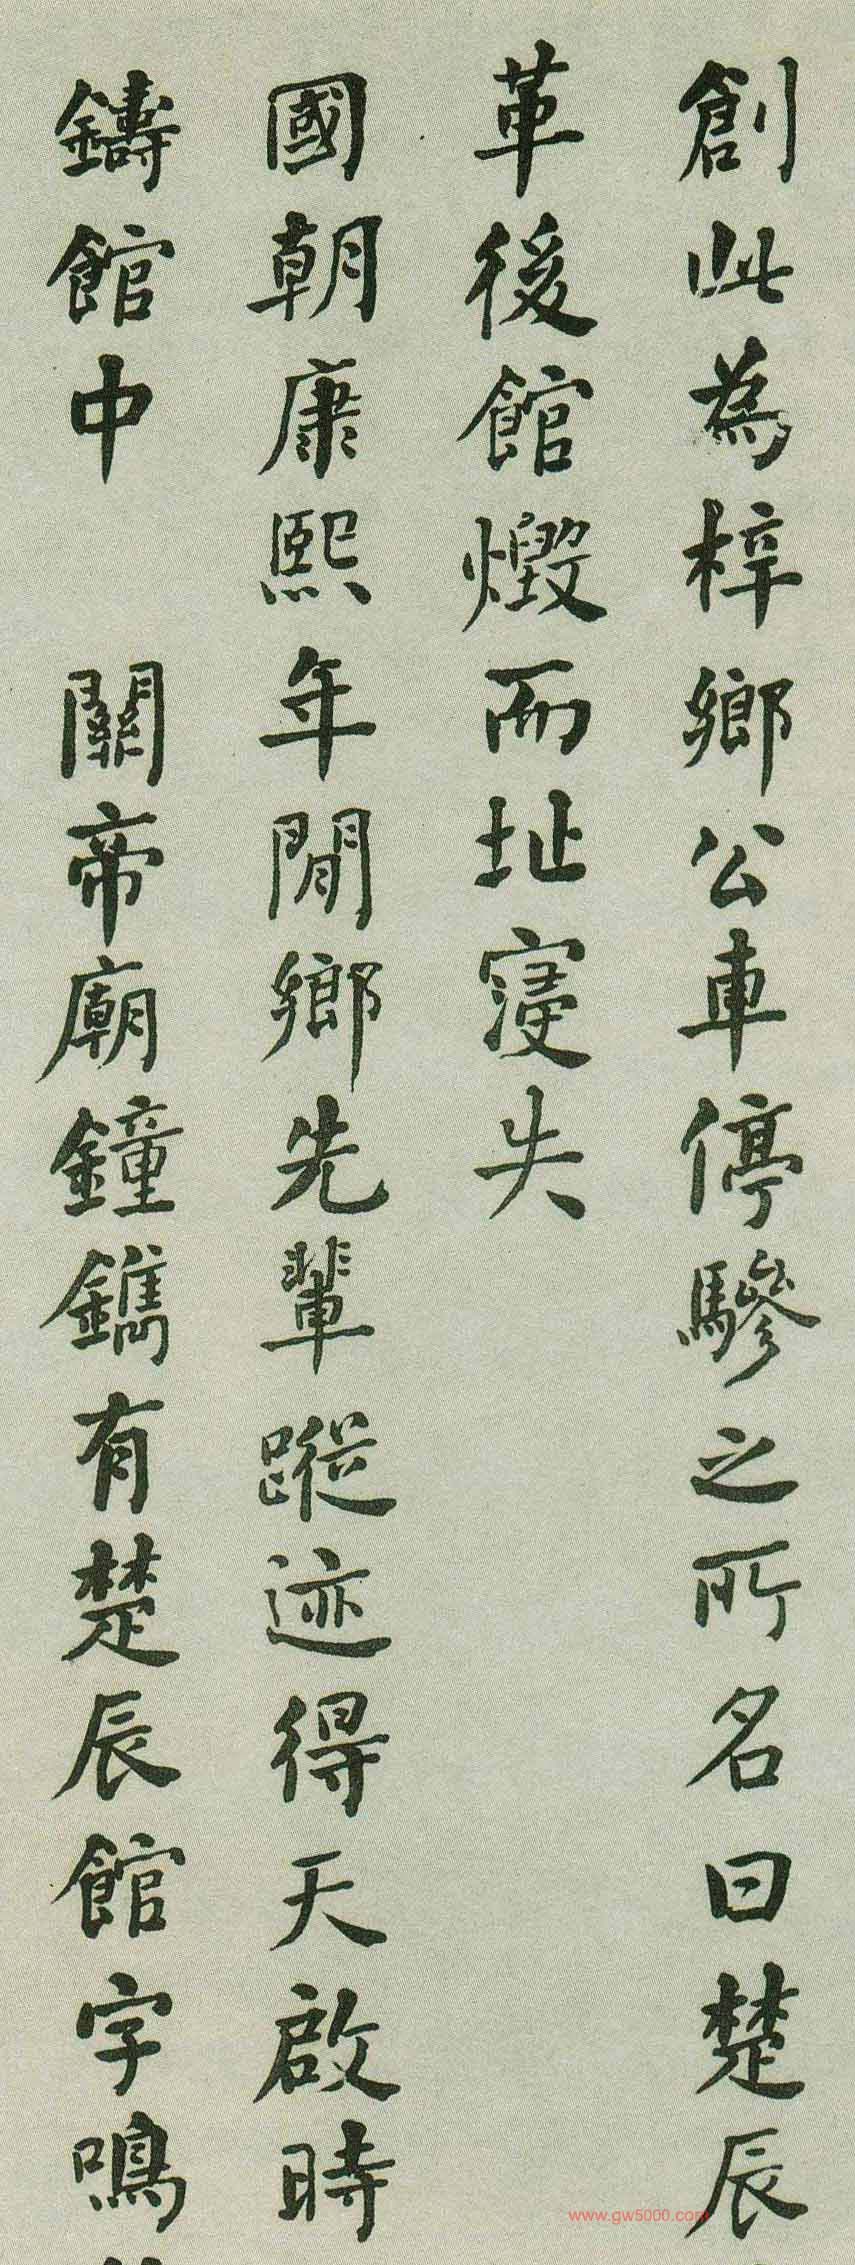 創此為梓鄉公車停驂之所名曰楚辰
革後館燬而址寖失
國朝康熙年間鄉先輩蹤迹得天啟時
鑄館中 關帝廟鐘鐫有楚辰館字鳴
www.gw5000.com